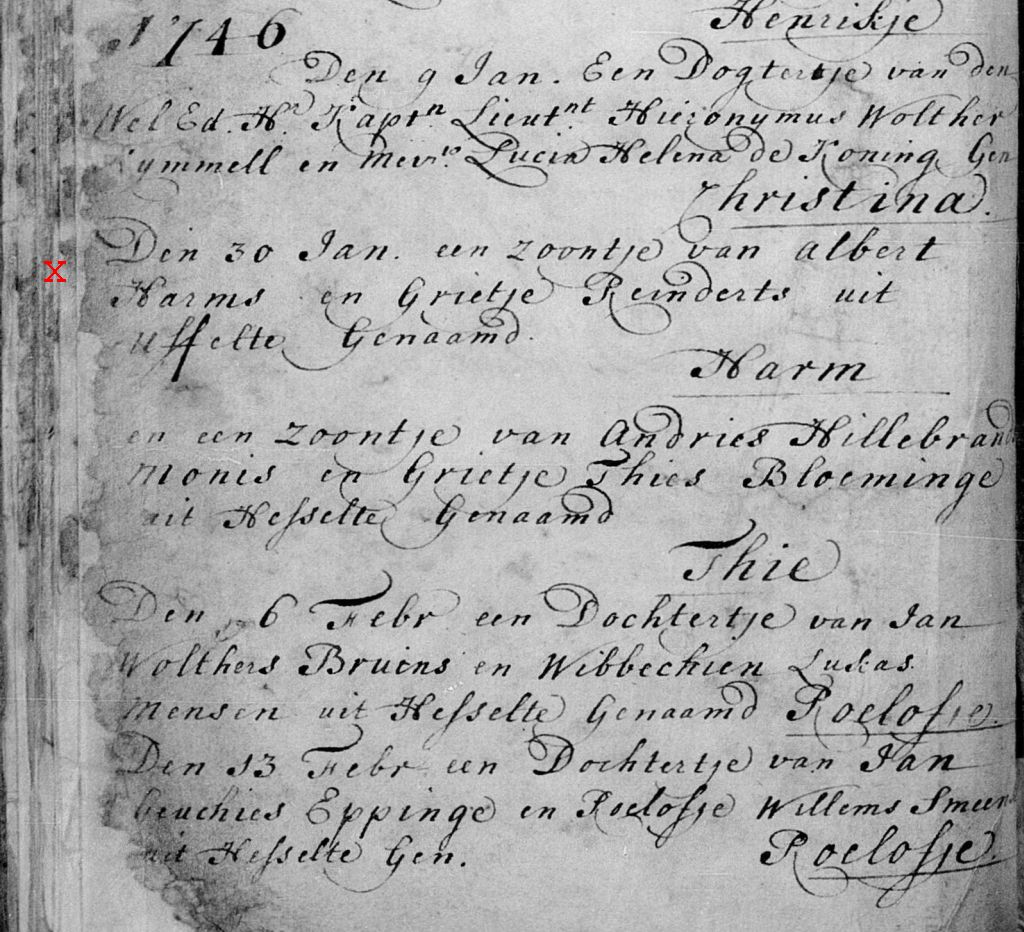 Henrikje
1746
Den 9 Jan. Een Dogtertje van den
Wel Ed. Hr Kaptn Lieutnt Hieronymus Wolther
Kymmell en Mevro Lucia Helena de Koning Gen
Christina.
Den 30 Jan. een zoontje van albert
X
Harms en Grietje Reinderts uit
uffelte Genaamd.
Harm
en een zoontje van Andries Hillebrand
Monis en Grietje Thies Bloeminge
uit Hesselte Genaamd
Thie
Den 6 Febr een Dochtertje van Jan
Wolthers Bruins en Wibbechien Lukas
Mensen uit Hesselte Genaamd Roelofje.
Den 13 Febr een Dochtertje van Jan
Eppinge en Roelofje Willems Smeen
uit Hesselte Gen.
Roelofje.